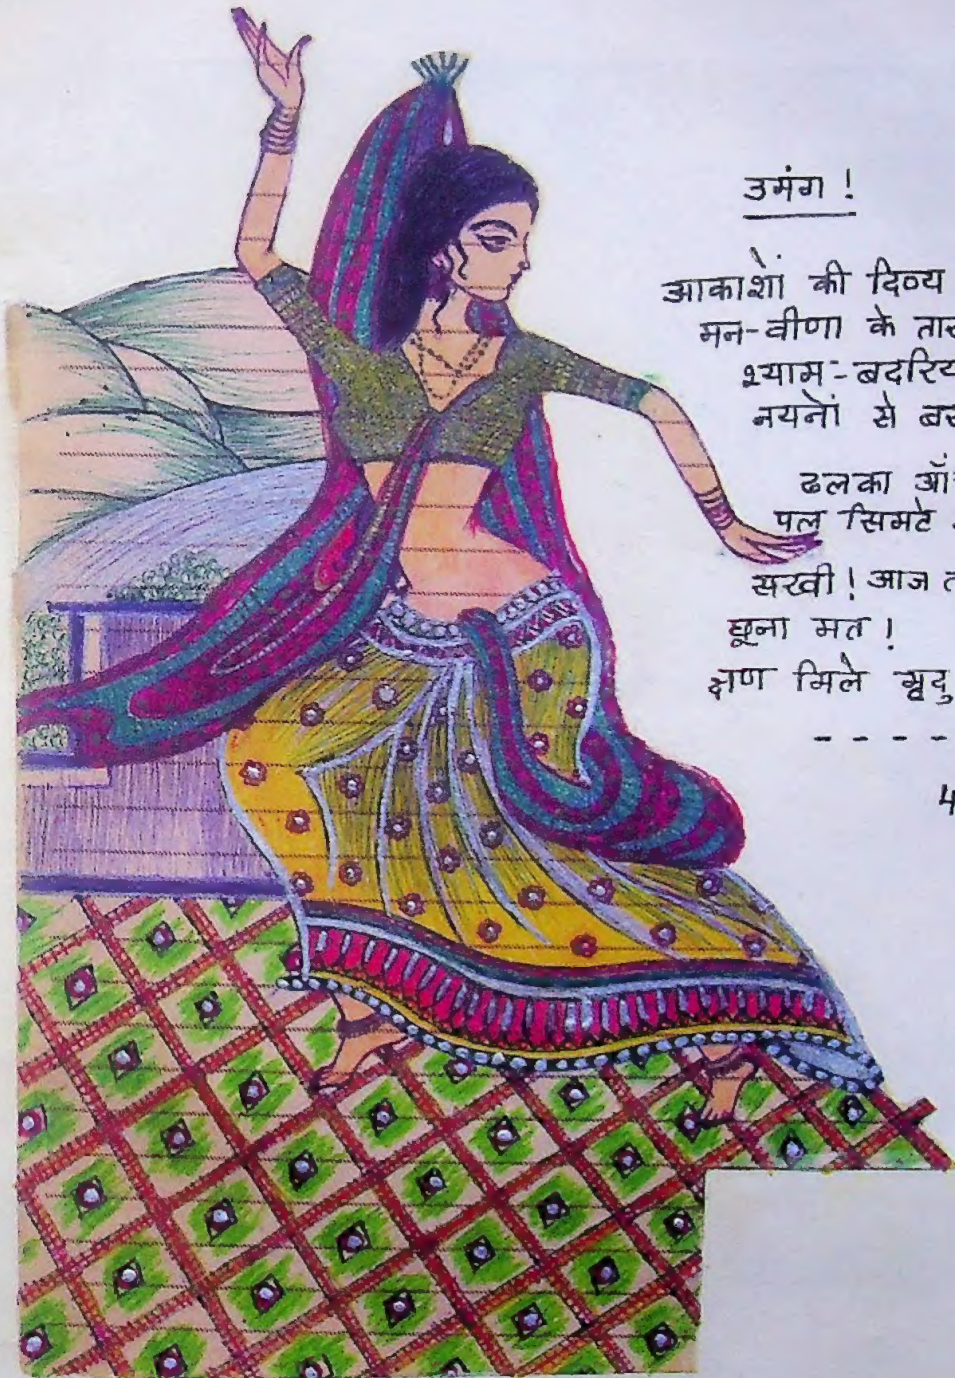 उमंग !
आकाशों की दिव्य
मन-वीणा के तार
श्याम-बदरिय
नयनों से बर
ढलका आँ
पल सिमटे
सखी ! आज त
छूना मत !
क्षण मिले मृदु
- - - -
4